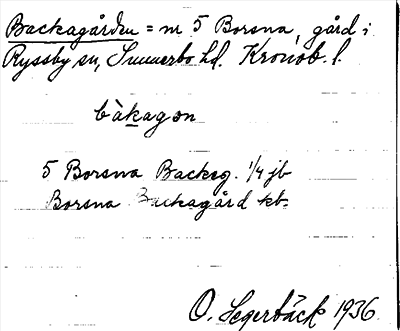 Backagården = nr 5 Borsna, gård i
Ryssby sn, Sunnerbo hd. Kronob. l.
bàkagon
5 Borsna Backeg. 1/4 jb
Borsna Backagård kb.
O. Segerbäck 1936